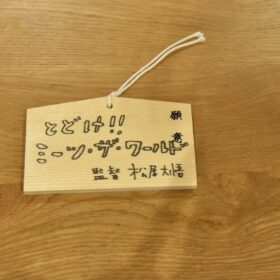 願意
とどけ!!
ミーツ・ザ・ワールド
監督 松居大悟